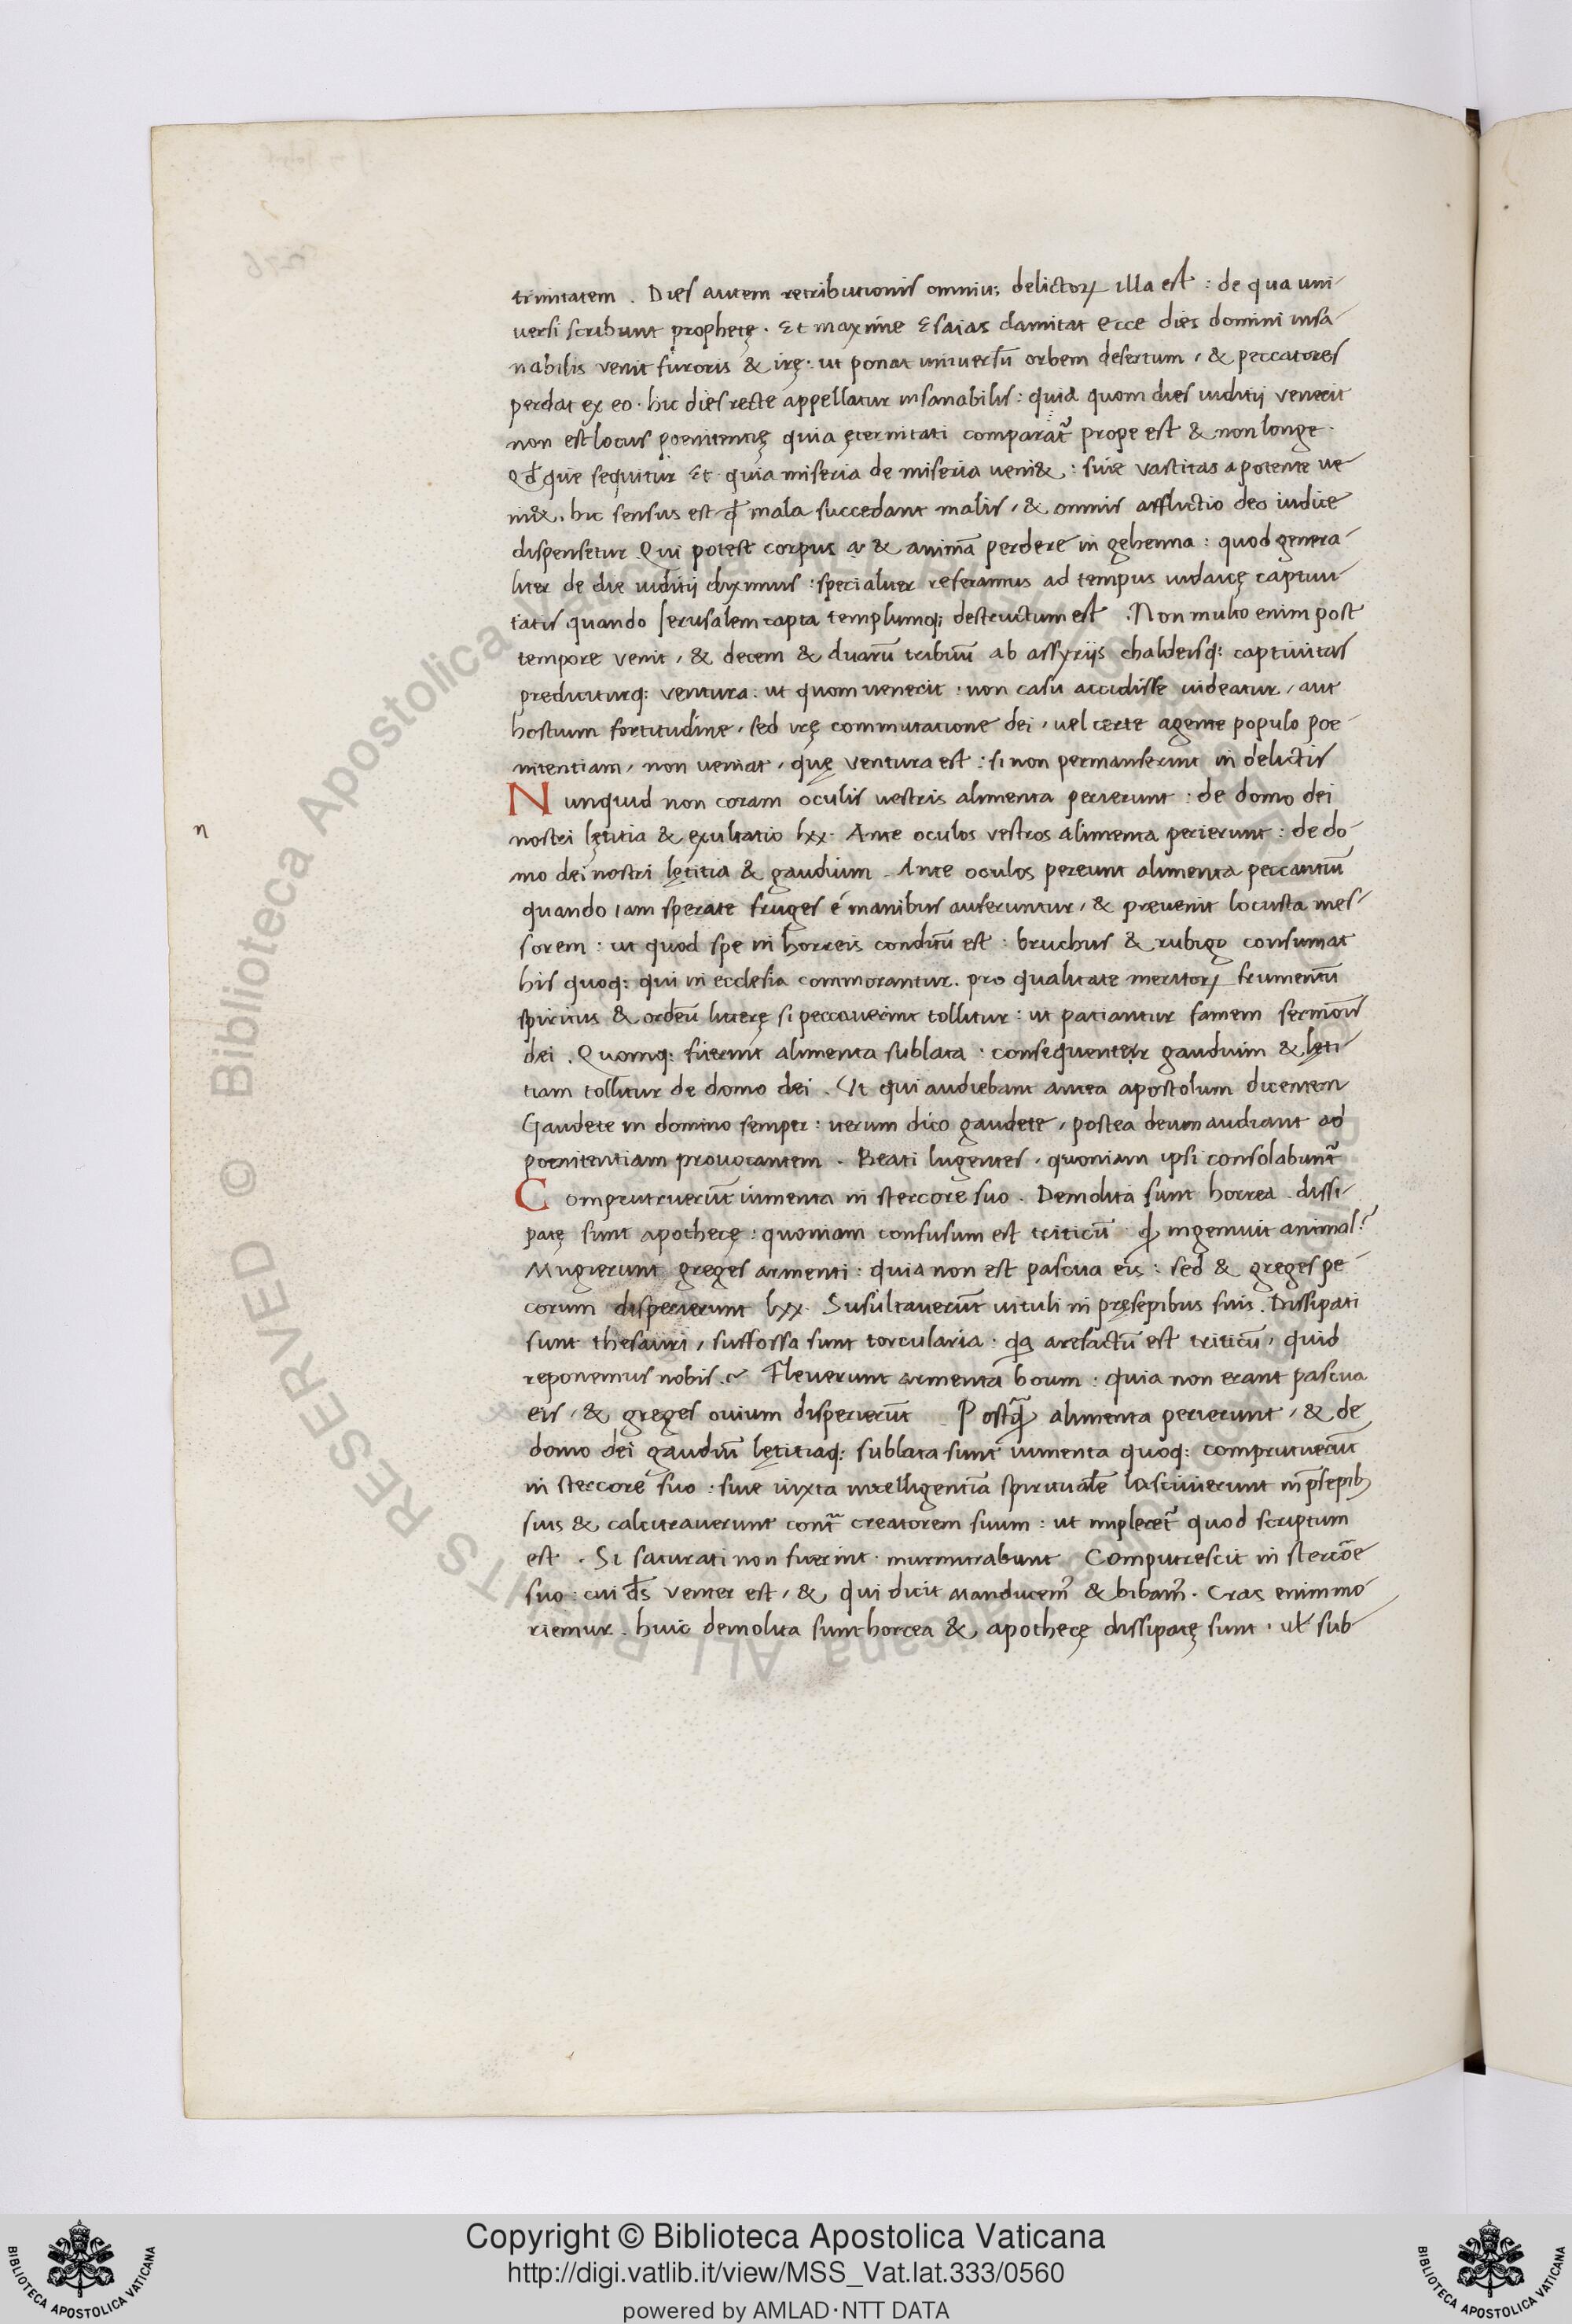 trinitatem . Dies autem retributionis omniū delictoꝝ illa est : de qua uni-
versi scribunt prophetę . Et maxime Esaias clamitat Ecce dies domini insa-
nabilis venit furoris & irę . ut ponat universū orbem desertum , & peccatores
perdat ex eo . hic dies recte appellatur insanabilis : quia quom dies iuditij venerit
non est locus poenitentię quia ęternitati comparat᷑ prope est & non longe .
Qđ que sequitur Et quia miseria de miseria veni& : sive vastitas a potente ve-
ni& . hic sensus est ꝙ mala succedant malis , & omnis afflictio deo iudice
dispensetur Qui potest corpus & animā perdere in gehenna : quod genera-
liter de die iuditij diximus : specialiter referamus ad tempus iudaicę captivi-
tatis quando Jerusalem capta templumq; destructum est . Non multo enim post
tempore venit , & decem & duarū tribuū ab assyrijs chaldeisq: captivitas
prediciturq: ventura : ut quom venerit : non casu accidisse videatur , aut
hostium fortitudine , sed irę commutatione dei , vel certe agente populo poe-
nitentiam , non veniat , quę ventura est : si non permanserint in delictis
Nunquid non coram oculis vestris alimenta perierunt : de domo dei
n
nostri lętitia & exultatio lxx . Ante oculos vestros alimenta perierunt : de do-
mo dei nostri lętitia & gaudium . Ante oculos pereunt alimenta peccantiū
quando iam sperate fruges é manibus auferuntur , & prevenit locusta mes-
sorem : ut quod spe in horreis conditū est : bruchus & rubigo consumat
his quoq: qui in ecclesia commorantur . pro qualitate meritoꝝ frumentū
spiritus & ordeū litterę si peccaverint tollitur : ut patiantur famem sermōis
dei . Quomq: fuerint alimenta sublata : consequenter gaudium & leti-
tiam tollitur de domo dei . Ut qui audiebant antea apostolum dicentem
Gaudete in domino semper : iterum dico gaudete , postea deum audiant ad
poenitentiam provocantem . Beati lugentes . quoniam ipsi consolabunt᷑
Computruerūt iumenta in stercore suo . Demolita sunt horrea . dissi-
patę sunt apothecę : quoniam confusum est triticū ꝙ ingemuit animal ?
Mugierunt greges armenti : quia non est pascua eis : sed & greges pe-
corum disperierunt lxx . Susultaverūt vituli in pręsepibus suis . Dissipati
sunt thesauri , suffossa sunt torcularia : qa arefactū est triticū , quid
reponemus nobis . Fleverunt armenta boum : quia non erant pascua
eis , & greges ovium disperierūt Postꝙ̄ alimenta perierunt , & de
domo dei gaudiū lętitiaq: sublata sunt iumenta quoq: computruerūt
in stercore suo : sive iuxta intelligentiā spiritualē lascivierunt in p̄sepib;
suis & calcitraverunt contᷓ creatorem suum : ut impleret᷑ quod scriptum
est . Si saturati non fuerint . murmurabunt Computrescit in stercōe
suo : cui ds̄ venter est , & qui dicit manducem᷒ & bibam᷒ . Cras enim mo-
riemur . huic demolita sunt horrea & apothecę dissipatę sunt . ut sub-
© Biblioteca Apostolica Vaticana ALL RIGHTS RESERVED
Copyright © Biblioteca Apostolica Vaticana
http://digi.vatlib.it/view/MSS_Vat.lat.333/0560
powered by AMLAD·NTT DATA
BIBLIOTECA APOSTOLICA VATICANA
BIBLIOTECA APOSTOLICA VATICANA